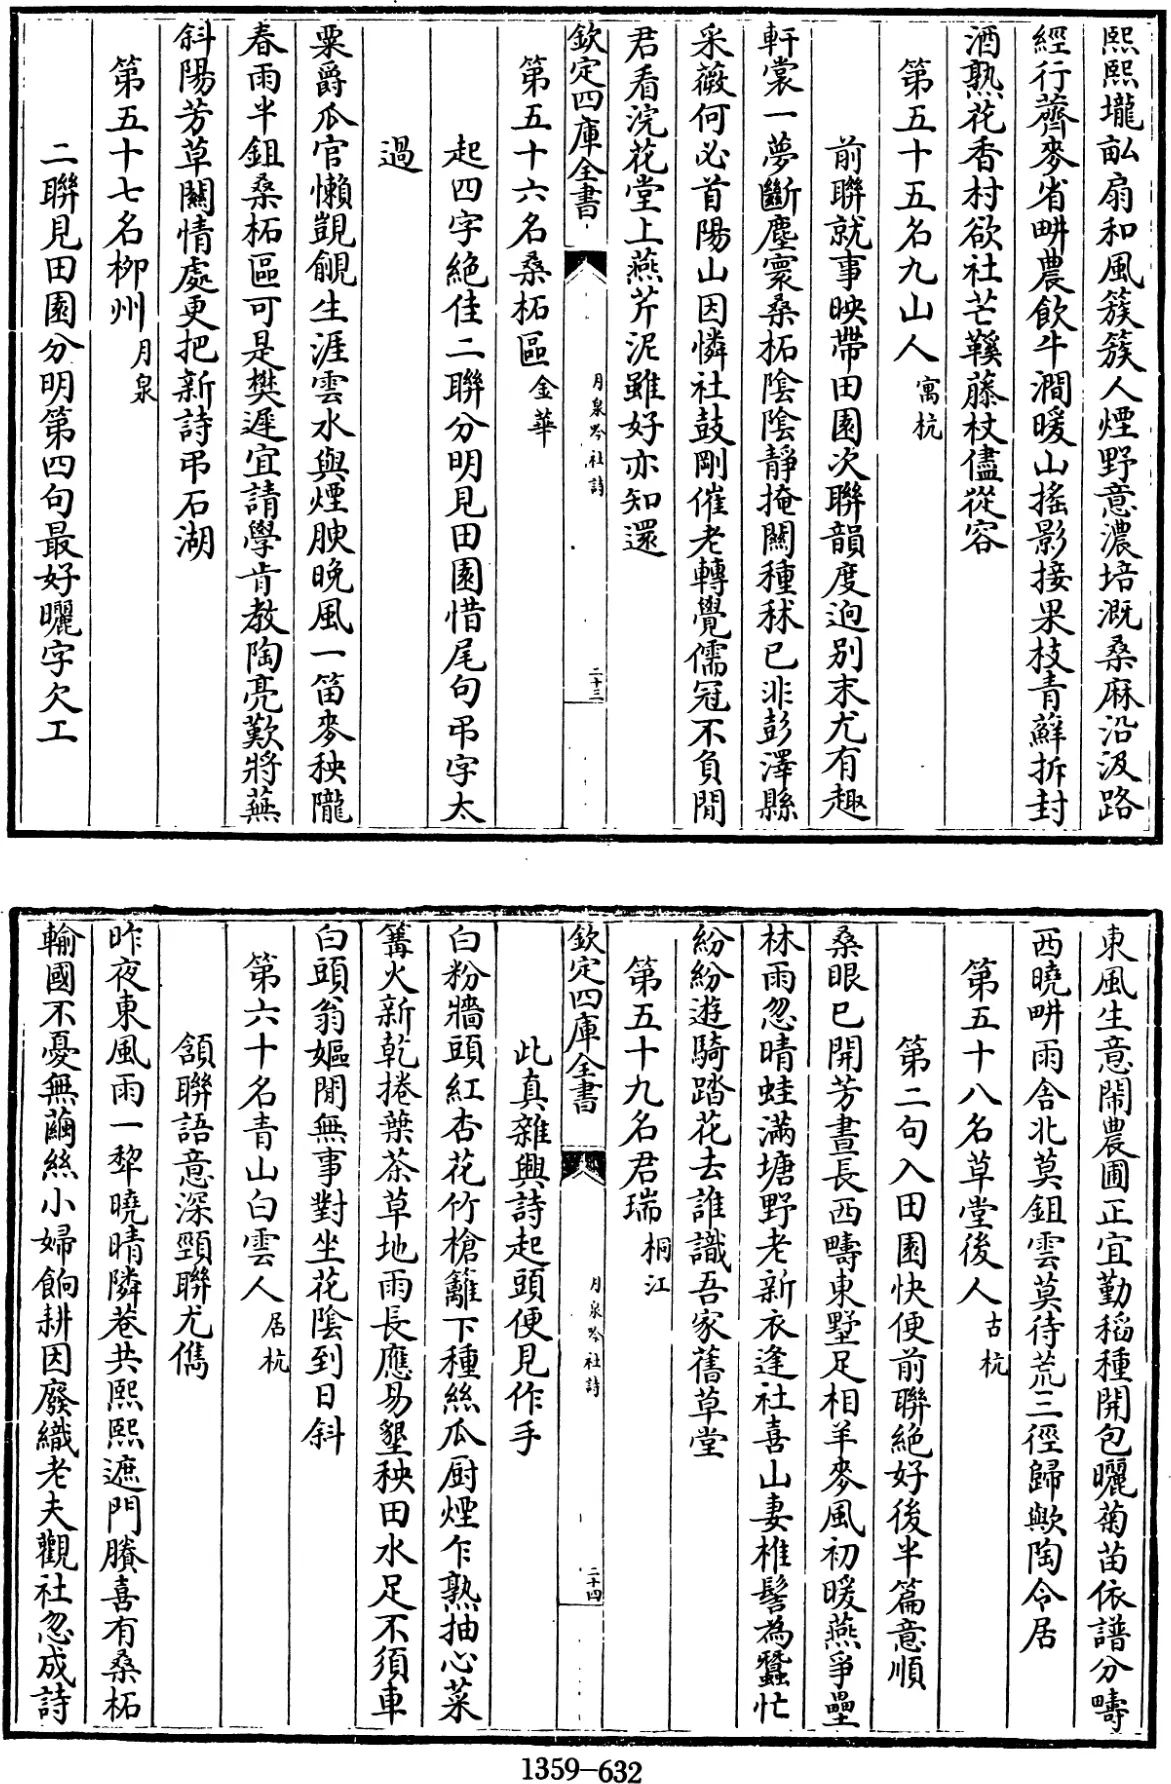 熙熙壠畝扇和風簇簇人煙野意濃培溉桑麻沿汲路
經行薺麥省畊農飲牛澗暖山搖影接果枝青蘚拆封
酒熟花香村欲社芒鞵藤杖儘從容
第五十五名九山人寓杭
前聯就事映帶田園次聯韻度逈别末尤有趣
軒裳一夢斷塵寰桑柘陰陰靜掩關種秫已非彭澤縣
采薇何必首陽山因憐社鼓剛催老轉覺儒冠不負閒
君看浣花堂上燕芹泥雖好亦知還
欽定四庫全書
月泉吟社詩
二十三
第五十六名桑柘區金華
起四字絶佳二聯分明見田園惜尾句弔字太
過
粟爵瓜官懶覬覦生涯雲水與煙腴晚風一笛麥秧隴
春雨半鉏桑柘區可是樊遲宜請學肯教陶亮歎將蕪
斜陽芳草關情處更把新詩弔石湖
第五十七名栁州月泉
二聯見田園分明第四句最好曬字欠工
東風生意閙農圃正宜勤稻種開包曬菊苗依譜分疇
西曉畊雨舍北莫鉏雲莫待荒三徑歸歟陶令居
第五十八名草堂後人古杭
第二句入田園快便前聯絶好後半篇意順
桑眼已開芳晝長西疇東墅足相羊麥風初暖燕爭壘
林雨忽晴蛙滿塘野老新衣逢社喜山妻椎髻為蠶忙
紛紛遊騎踏花去誰識吾家舊草堂
第五十九名君瑞桐江
欽定四庫全書
月泉吟社詩
二十四
此真雜興詩起頭便見作手
白粉牆頭紅杏花竹槍籬下種絲瓜厨煙乍熟抽心菜
篝火新乾捲葉茶草地雨長應易墾秧田水足不須車
白頭翁嫗閒無事對坐花陰到日斜
第六十名青山白雲人居杭
頷聯語意深頸聯尤儁
昨夜東風雨一犂曉晴隣巷共熙熙遮門賸喜有桑柘
輸國不憂無繭絲小婦餉耕因廢織老夫觀社忽成詩
1359-632